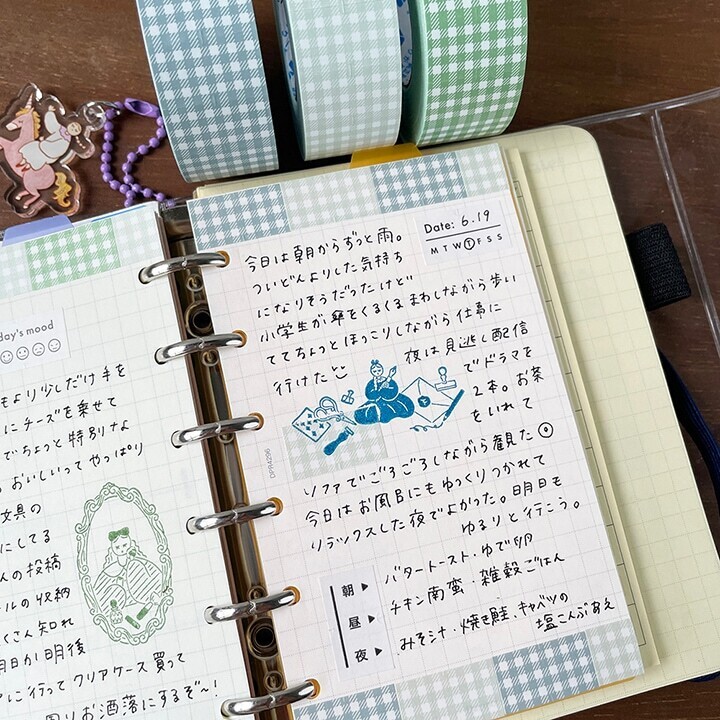 day's mood
もより少しだけ手を
にチーズを乗せて
でちょっと特別な
。おいしいって やっぱり
文具の
にしてる
人の投稿
ールの収納
くさん知れ
明日か明後
アに行って クリアケース 買って
周りお洒落にするぞ〜!
Date: 6.19
M T W T F S S
今日は朝からずっと雨。
ついどんよりした気持ち
になりそうだったけど
小学生が傘をくるくるまわしながら歩い
ててちょっとほっこりしながら仕事に
行けた
夜は見逃し配信
でドラマを
2本。お茶
をいれて
DPR4296
ソファでごろごろしながら観た
今日はお風呂にもゆっくりつかれて
リラックスした夜でよかった。明日も
ゆるりと行こう。
朝▶ バタートースト・ゆで卵
昼▶ チキン南蛮・雑穀ごはん
夜▶ みそシナ・焼き鮭、キャベツの
塩こんぶあえ